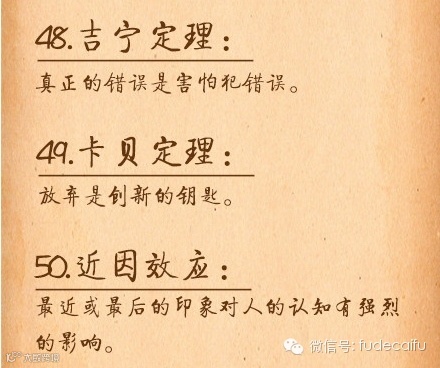 48.吉宁定理：
真正的错误是害怕犯错误。
49.卡贝定理：
放弃是创新的钥匙。
50.近因效应：
最近或最后的印象对人的认知有强烈
的影响。
微信号: fudecaifu